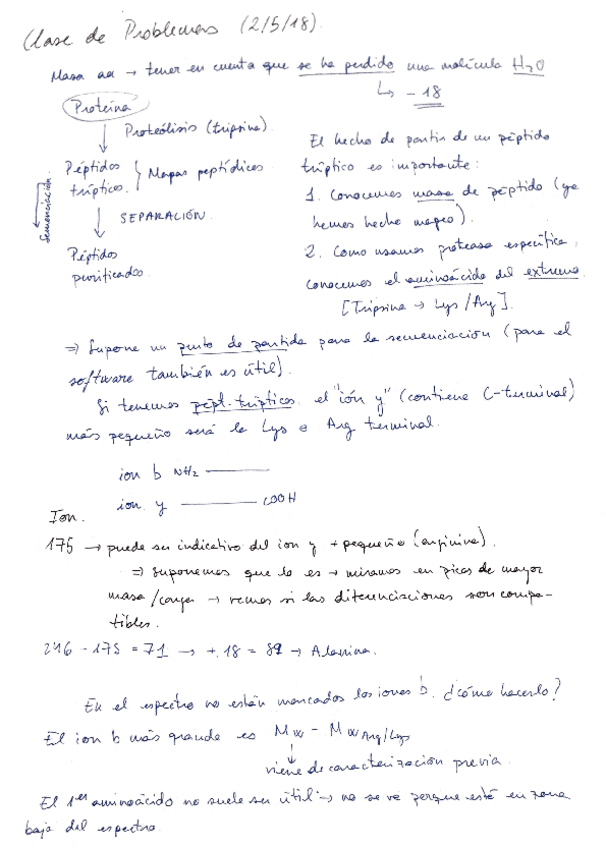 Clase de Problemas (2/5/18).
Masa aa → tener en cuenta que se ha perdido una molécula H2O
↳ - 18
Proteína
↓ Proteólisis (tripsina).
Péptidos trípticos } Mapas peptídicos.
Secuenciación.
↓ SEPARACIÓN.
Péptidos
purificados.
El hecho de partir de un péptido
tríptico es importante:
1. Conocemos masa de péptido (ya
hemos hecho mapeo).
2. Como usamos proteasa específica,
conocemos el aminoácido del extremo
[Tripsina → Lys/Arg].
⇒ Supone un punto de partida para la secuenciación (para el
software también es útil).
Si tenemos pépt. trípticos el "ión y" (contiene C-terminal)
más pequeño será la Lys o Arg terminal.
ion b NH2 ———
ion y ——— COOH
Ion.
175 → puede ser indicativo del ion y + pequeño (arginina).
⇒ suponemos que lo es → miramos en picos de mayor
masa/carga → vemos si las diferenciaciones son compa-
tibles.
246 - 175 = 71 → + 18 = 89 → Alanina.
En el espectro no están marcados los iones b. ¿cómo hacerlo?
El ion b más grande es Mw - Mw Arg/Lys
↓
viene de caracterización previa.
El 1er aminoácido no suele ser útil → no se ve porque está en zona
baja del espectro.